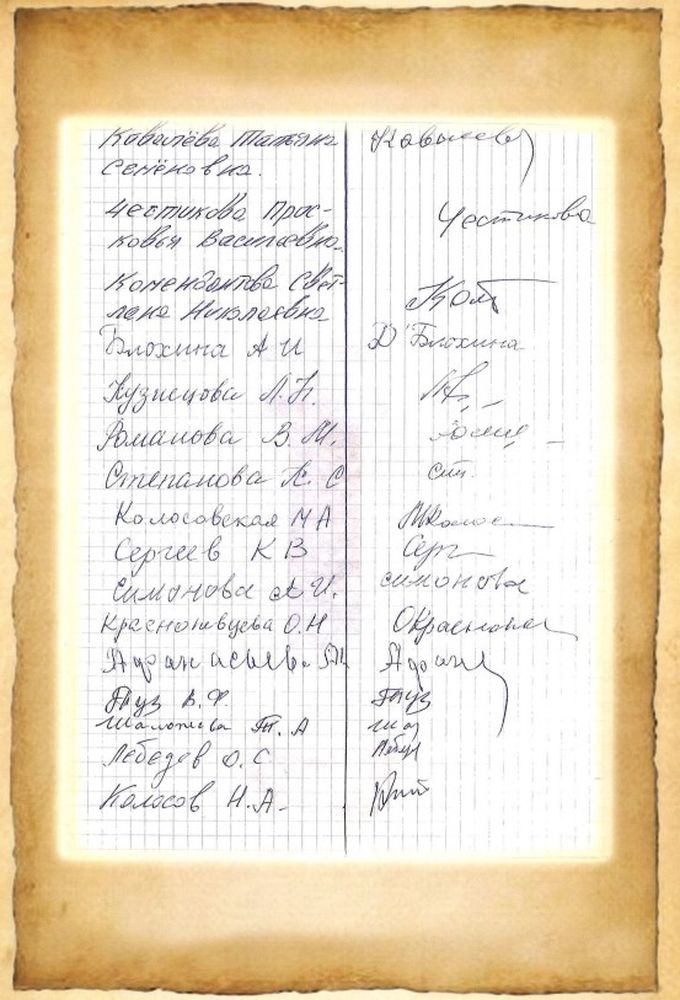 Ковалёва Татьяна Ковалев
Семёновна.
Честикова Прас-
ковья Васильевна Честикова
Комендантова Свет-
лана Николаевна Ком
Блохина А И Блохина
Кузнецова Л.Н.
Романова В. М.
Степанова К. С Сте.
Колосовская М А МКолос
Сергеев К В Серг
Симонова А И. Симонова
Красножевцева О.Н ОКрасно
Афанасьева Афан
Туз В. Ф. Туз
Т. А Ша
Лебедев О. С Лебед
Колосов Н.А.